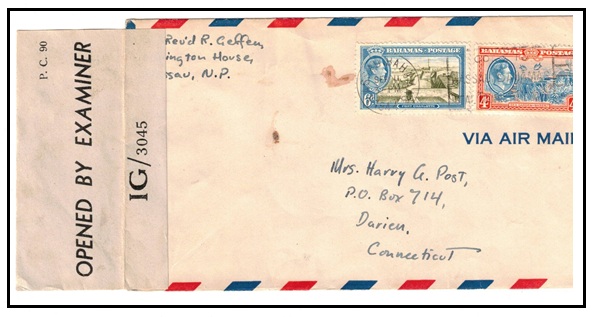 P. C. 90
OPENED BY EXAMINER
IG/3045
Rev'd R. Geffen,
ington House,
ssau, N.P.
BAHAMAS · POSTAGE
6d
BAHAMAS · POSTAGE
4d
VIA AIR MAI
Mrs. Harry G. Post,
P.O. Box 714,
Darien,
Connecticut